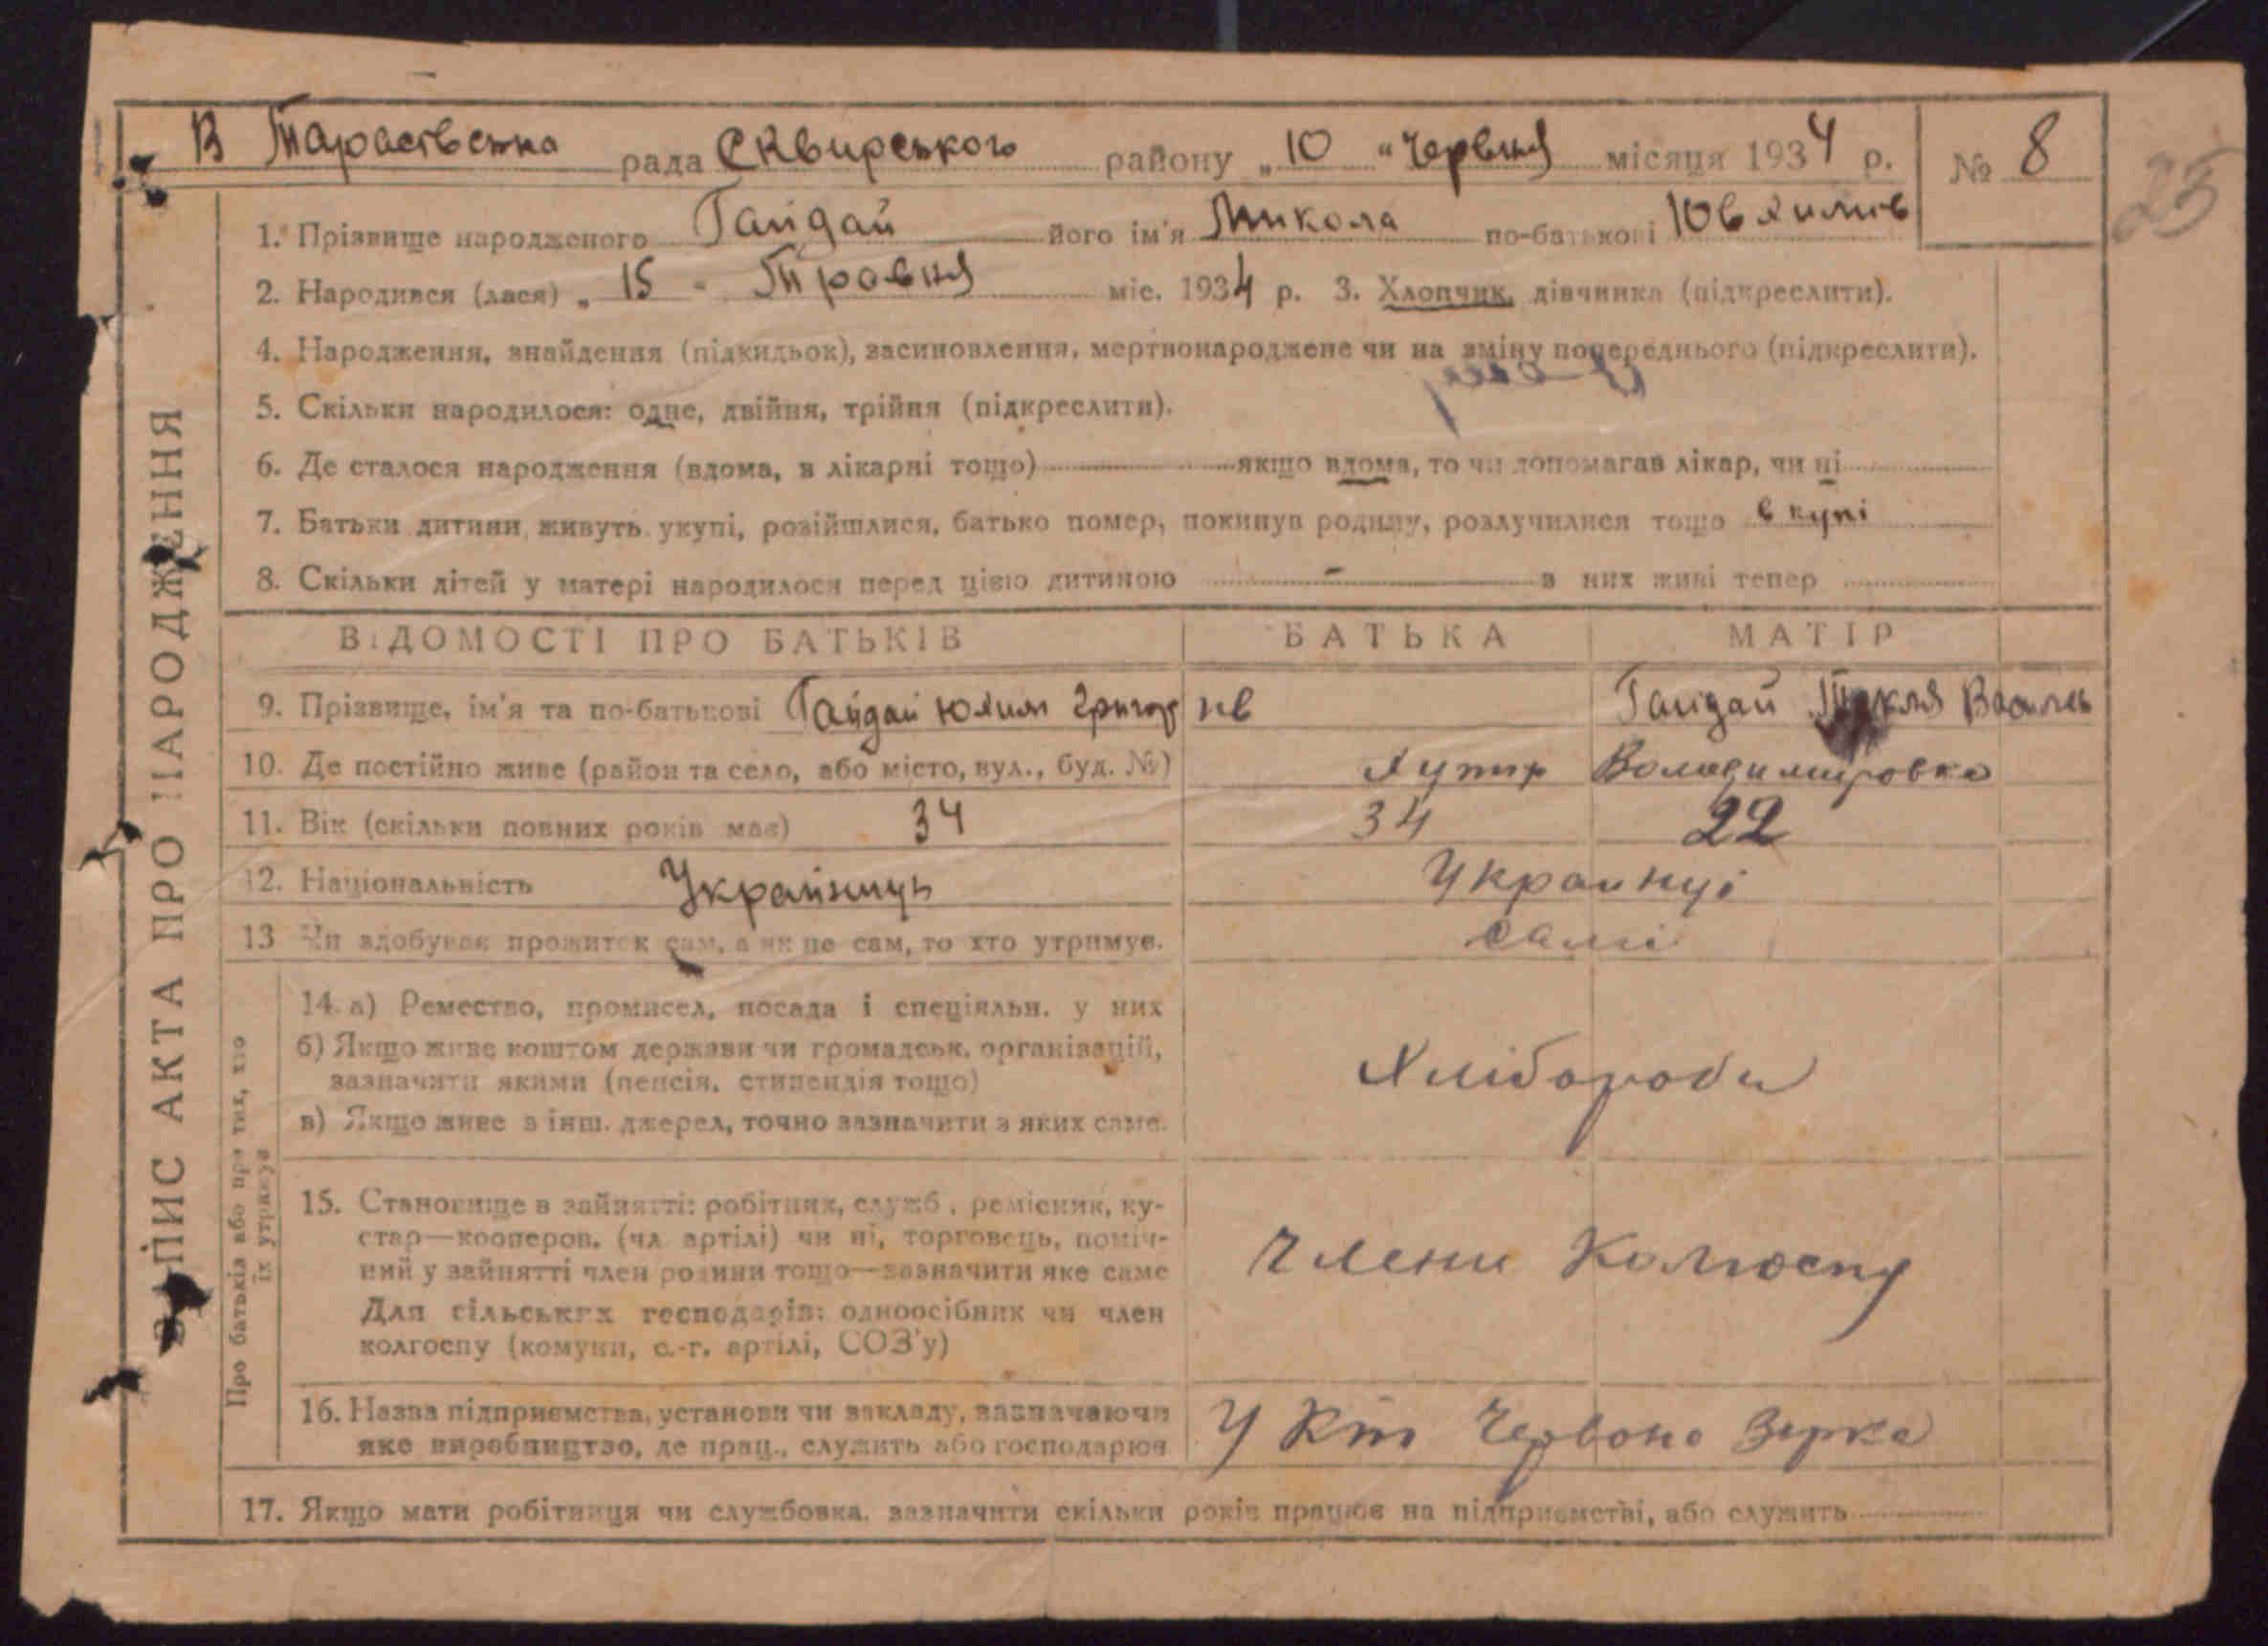 В Тараствська рада Сквирського району „ 10 " Червня місяця 1934 р. № 8
23
1. Прізвище народженого Гайдай його ім'я Микола по-батькові Ювхимів
2. Народився (лася) „ 15 " Травня міс. 1934 р. 3. Хлопчик, дівчинка (підкреслити).
4. Народження, знайдення (підкидьок), засиновлення, мертвонароджене чи на зміну попереднього (підкреслити).
5. Скільки народилося: одне, двійня, трійня (підкреслити).
6. Де сталося народження (вдома, в лікарні тощо) якщо вдома, то чи допомагав лікар, чи ні
7. Батьки дитини живуть укупі, розійшлися, батько помер, покинув родину, розлучилися тощо в купі
8. Скільки дітей у матері народилося перед цією дитиною - з них живі тепер
ЗАПИС АКТА ПРО НАРОДЖЕННЯ
ВІДОМОСТІ ПРО БАТЬКІВ БАТЬКА МАТІР
9. Прізвище, ім'я та по-батькові Гайдай Юхим Григор ив Гайдай Текля Василів
10. Де постійно живе (район та село, або місто, вул., буд. №) Хутір Володимировка
11. Вік (скільки повних років має) 34 34 22
12. Національність Українець Украинці
13 Чи здобуває прожиток сам, а як не сам, то хто утримує. самі
Про батьків або про тих, хто їх утримує
14. а) Ремество, промисел, посада і спеціяльн. у них
б) Якщо живе коштом держави чи громадськ. організацій,
зазначити якими (пенсія, стипендія тощо)
в) Якщо живе з інш. джерел, точно зазначити з яких саме.
Хлібороби
15. Становище в зайнятті: робітник, служб., ремісник, ку-
стар—кооперов. (чл. артілі) чи ні, торговець, поміч-
ний у зайнятті член родини тощо—зазначити яке саме
Для сільських господарів: одноосібник чи член
колгоспу (комуни, с.-г. артілі, СОЗ'у)
Члени Колгоспу
16. Назва підприємства, установи чи закладу, зазначаючи
яке виробництво, де прац., служить або господарює
У Кт Червона Зірка
17. Якщо мати робітниця чи службовка, зазначити скільки років працює на підприємстві, або служить